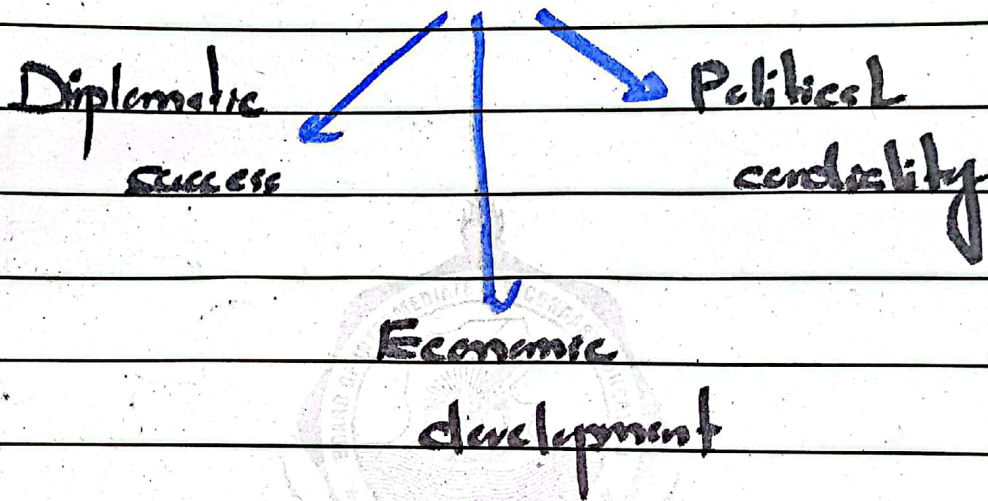 Diplomatic
success
Political
cordiality
Economic
development